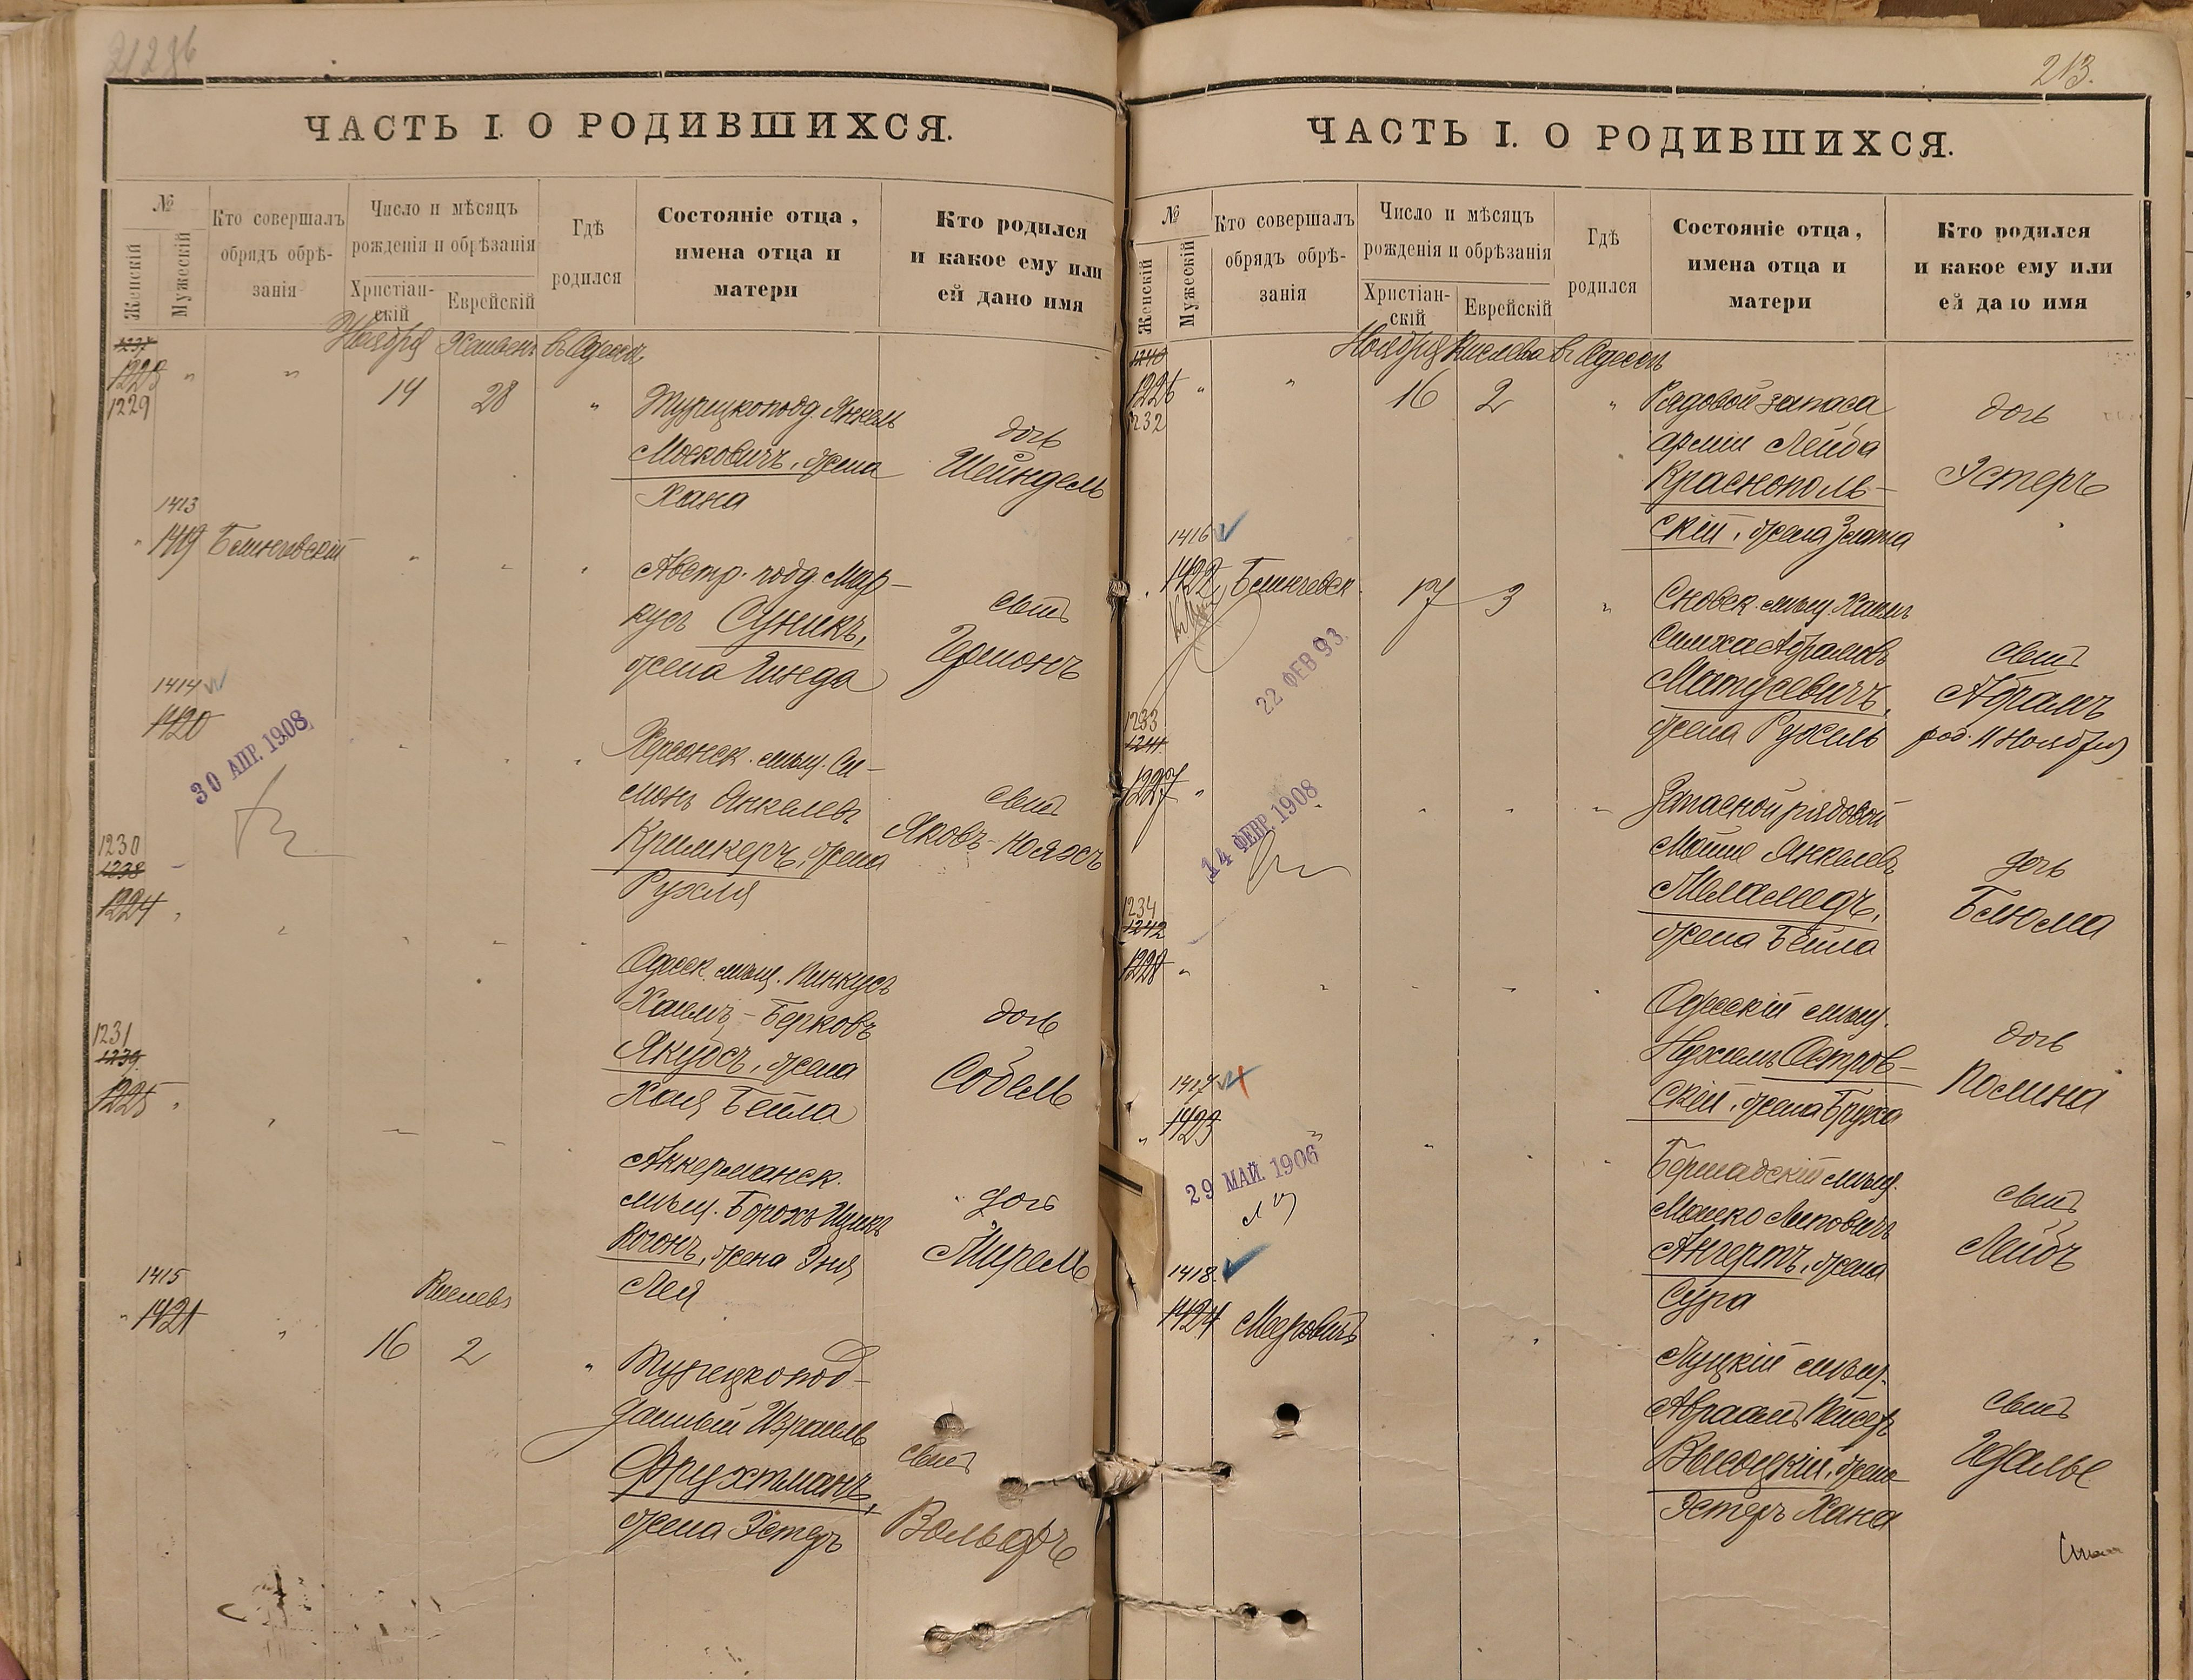 ЧАСТЬ I. О РОДИВШИХСЯ.
№
Женскій
Мужескій
Кто совершалъ
обрядъ обрѣ-
занія
Число и мѣсяцъ
рожденія и обрѣзанія
Христіан-
скій
Еврейскій
Гдѣ
родился
Состояніе отца,
имена отца и
матери
Кто родился
и какое ему или
ей дано имя
Ноября Хешвенъ въ Одессѣ
1229
14 28
Турецкопод. Янкель
Московичъ, жена
Хана
дочь
Шейндель
1413
1419
Австр. подд. Мар-
кусъ Суникъ,
жена Гинда
сынъ
1414
1420
30 АПР. 1908
Херсонск. мѣщ. Си-
монъ Янкелевъ
Кримкеръ, жена
Рухля
сынъ
Яковъ-
1230
1238
1224
Одесск. мѣщ. Пинкусъ
Хаимъ-Берковъ
Якубсъ, жена
Хая Бейла
дочь
Собель
1231
1239
1225
Аккерманск.
мѣщ. Борохъ Ицковъ
Коганъ, жена Эня
Лея
дочь
Мирель
1415
1421
Кислевъ
16 2
Турецкопод-
данный Израиль
Фрухтманъ,
жена Эстеръ
сынъ
Вольфъ
213.
ЧАСТЬ I. О РОДИВШИХСЯ.
№
Женскій
Мужескій
Кто совершалъ
обрядъ обрѣ-
занія
Число и мѣсяцъ
рожденія и обрѣзанія
Христіан-
скій
Еврейскій
Гдѣ
родился
Состояніе отца,
имена отца и
матери
Кто родился
и какое ему или
ей дано имя
Ноября Кислева въ Одессѣ
1240
1226
1232
16 2
Рядовой запаса
арміи Лейба
Краснополь-
скій, жена Злата
дочь
Эстеръ
1416
1422
17 3
22 ФЕВ 93
Сновск. мѣщ. Хаимъ
Симха Абрамовъ
Матусевичъ,
жена Рухель
сынъ
Абрамъ
род. 11 Ноября
1233
1241
1227
14 ФЕВР. 1908
Запасной рядовой
Мойше Янкелевъ
Меламедъ,
жена Бейла
дочь
Блюма
1234
1242
1228
Одесскій мѣщ.
Нухимъ Остров-
скій, жена Бруха
дочь
Полина
1417
1423
29 МАЙ. 1906
Бершадскій мѣщ.
Мошко Липовичъ
Ангертъ, жена
Сура
сынъ
Лейбъ
1418.
1424 Мееровичъ
Луцкій мѣщ.
Авраамъ Пейсехъ
Высоцкій, жена
Эстеръ Хана
сынъ
Гдалье